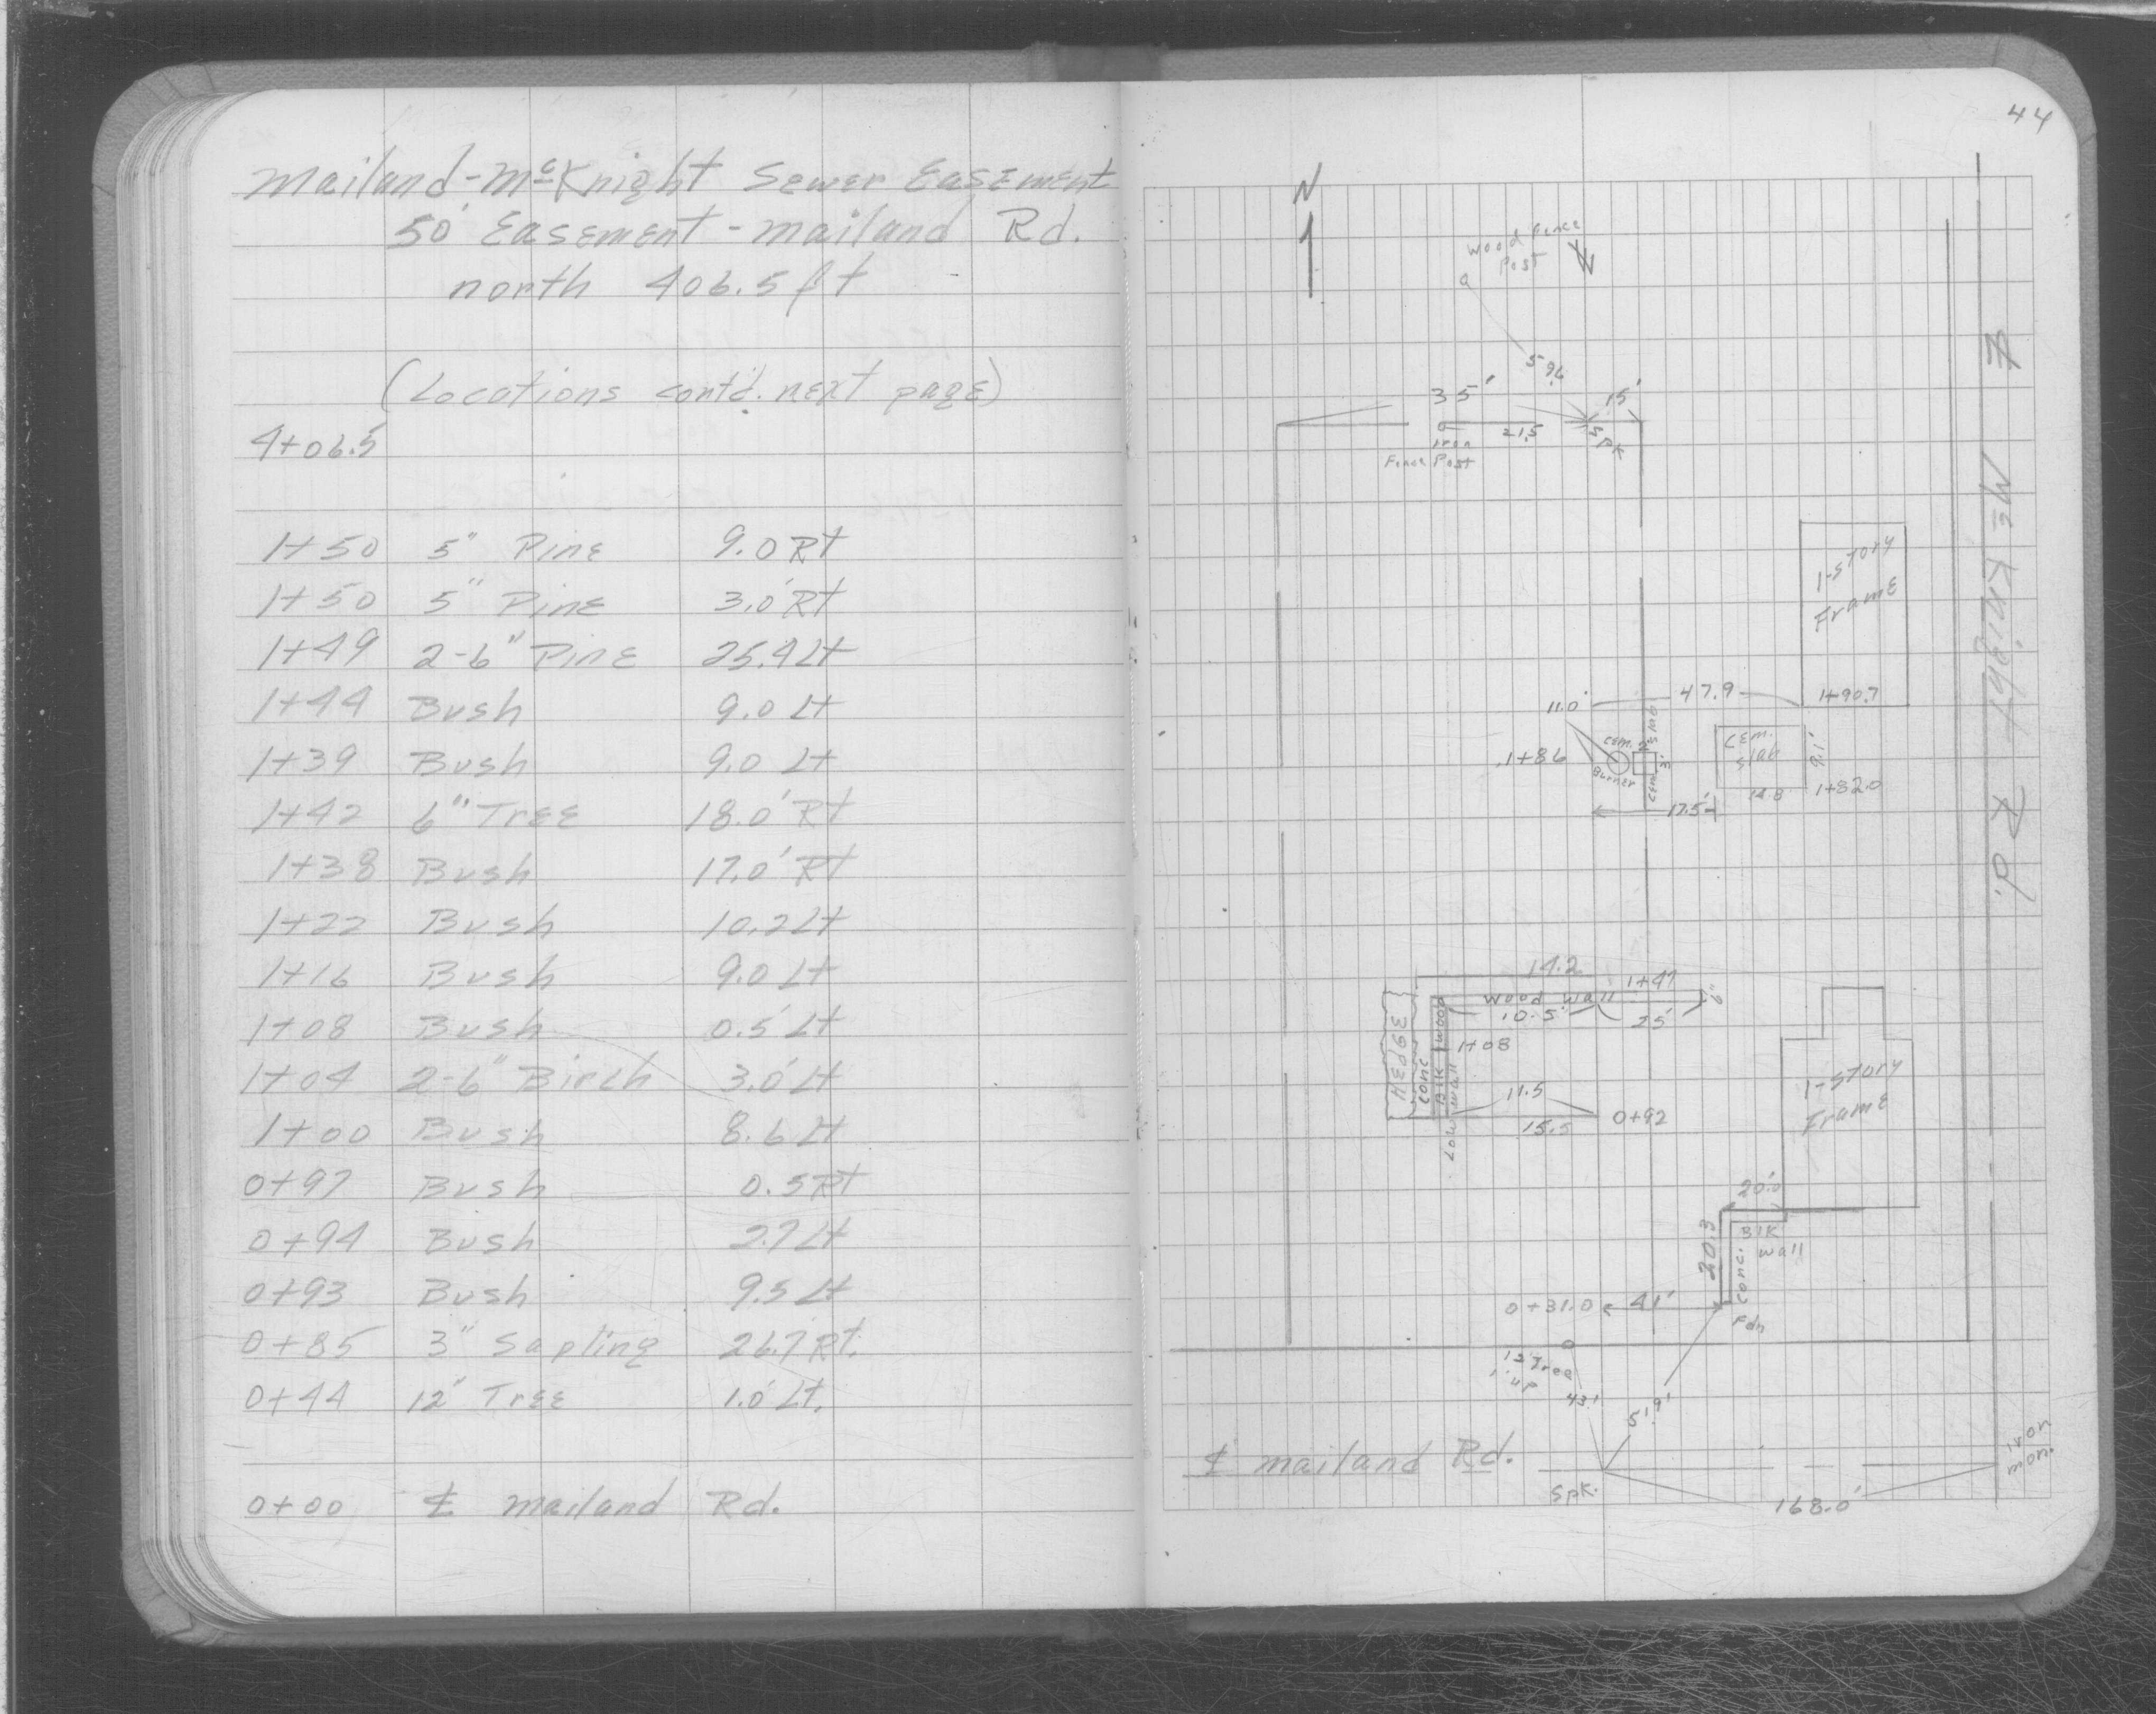 Mailand-McKnight Sewer Easement
50' Easement - Mailand Rd.
north 406.5 ft
(Locations cont'd. next page)
4+06.5
1+50 5" Pine 9.0 Rt
1+50 5" Pine 3.0' Rt
1+49 2-6" Pine 25.4 Lt
1+44 Bush 9.0 Lt
1+39 Bush 9.0 Lt
1+42 6" Tree 18.0' Rt
1+38 Bush 17.0' Rt
1+22 Bush 10.2 Lt
1+16 Bush 9.0 Lt
1+08 Bush 0.5' Lt
1+04 2-6" Birch 3.0' Lt
1+00 Bush 8.6 Lt
0+97 Bush 0.5 Rt
0+94 Bush 2.7 Lt
0+93 Bush 9.5 Lt
0+85 3" Sapling 26.7 Rt.
0+44 12" Tree 1.0' Lt.
0+00 ℄ Mailand Rd.
44
N
Wood Fence
Post
℄
59.6
35'
15'
21.5
Spk
Iron
Fence Post
℄ McKnight Rd.
1-story
Frame
47.9
1+90.7
11.0'
1+86
Cem.
Burner
2'
3'
Cem. Slab
Cem.
Slab
9.1'
14.8
1+82.0
17.5'
14.2
1+47
Wood Wall
6"
10.5'
25'
Hedge
Conc
Blk
Wood
Low Wall
1+08
11.5
15.5
0+92
1-story
Frame
20.0
20.3
Blk
Wall
Conc.
0+31.0
41'
Fdn
12" Tree
1' up
43.1
51.9'
℄ Mailand Rd.
Spk.
168.0'
Iron
mon.